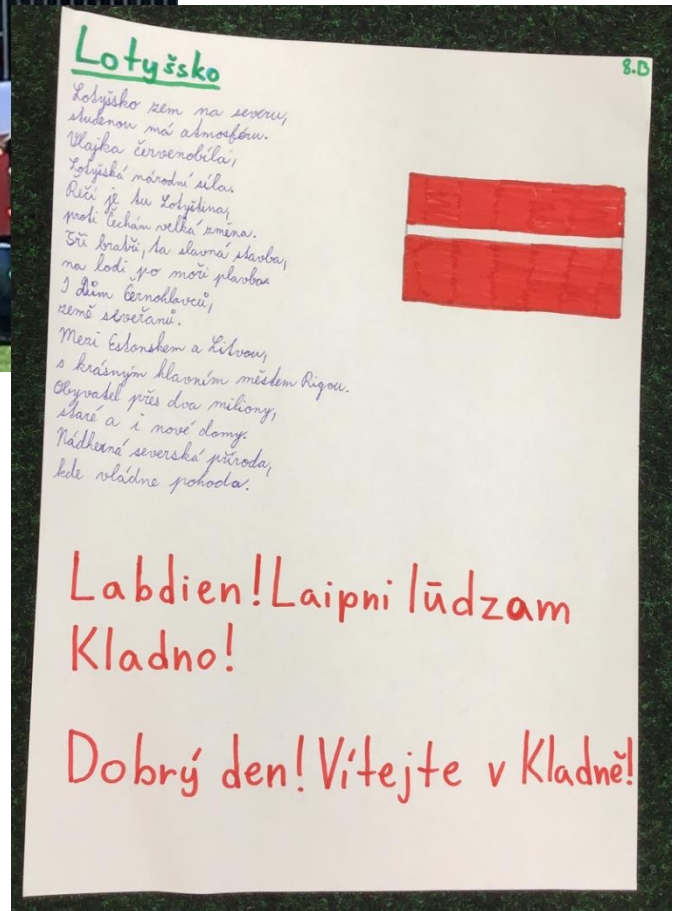 Lotyšsko
8.B
Lotyšsko zem na severu,
studenou má atmosféru.
Vlajka červenobílá,
Lotyšská národní síla.
Řečí je tu Lotyština,
proti Čechám velká změna.
Tři bratři, ta slavná stavba,
na lodi po moři plavba.
I Dům Černohlavců,
země seveřanů.
Mezi Estonskem a Litvou,
s krásným hlavním městem Rigou.
Obyvatel přes dva miliony,
staré a i nové domy.
Nádherná severská příroda,
kde vládne pohoda.
Labdien! Laipni lūdzam
Kladno!
Dobrý den! Vítejte v Kladně!